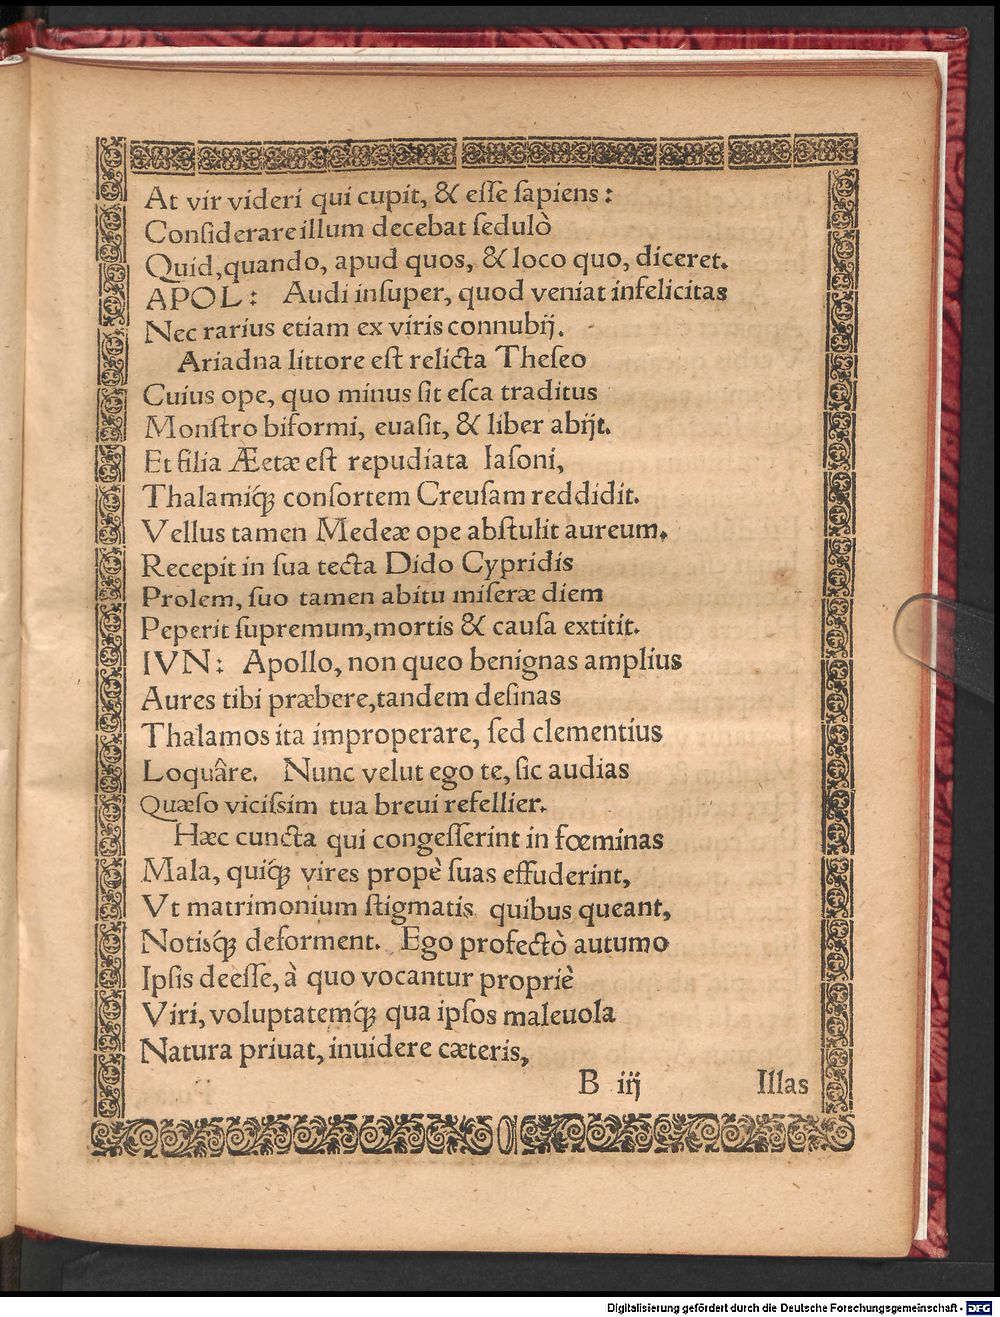 At vir videri qui cupit, & eſſe ſapiens:
Conſiderare illum decebat ſedulò
Quid, quando, apud quos, & loco quo, diceret.
APOL: Audi inſuper, quod veniat infelicitas
Nec rarius etiam ex viris connubij.
Ariadna littore eſt relicta Theſeo
Cuius ope, quo minus ſit eſca traditus
Monſtro biformi, euaſit, & liber abijt.
Et filia Æetæ eſt repudiata Iaſoni,
Thalamiq́ꝫ conſortem Creuſam reddidit.
Vellus tamen Medeæ ope abſtulit aureum.
Recepit in ſua tecta Dido Cypridis
Prolem, ſuo tamen abitu miſeræ diem
Peperit ſupremum, mortis & cauſa extitit.
IVN: Apollo, non queo benignas amplius
Aures tibi præbere, tandem deſinas
Thalamos ita improperare, ſed clementius
Loquâre. Nunc velut ego te, ſic audias
Quæſo viciſsim tua breui refellier.
Hæc cuncta qui congeſſerint in fœminas
Mala, quiq́ꝫ vires propè ſuas effuderint,
Vt matrimonium ſtigmatis quibus queant,
Notisq́ꝫ deforment. Ego profectò autumo
Ipſis deeſſe, à quo vocantur propriè
Viri, voluptatemq́ꝫ qua ipſos maleuola
Natura priuat, inuidere cæteris,
B iij Illas
Digitalisierung gefördert durch die Deutsche Forschungsgemeinschaft - DFG